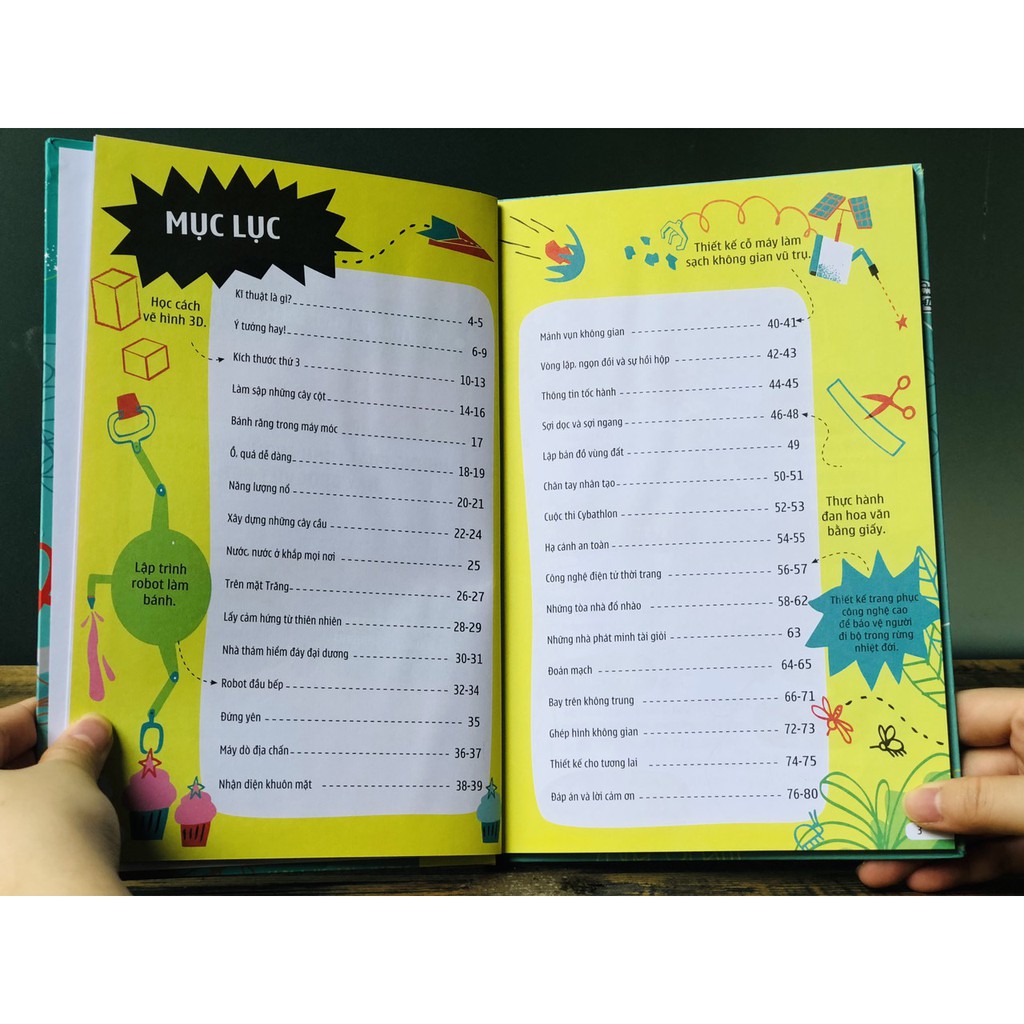 MỤC LỤC
Học cách
vẽ hình 3D.
Kĩ thuật là gì? 4-5
Ý tưởng hay! 6-9
Kích thước thứ 3 10-13
Làm sập những cây cột 14-16
Bánh răng trong máy móc 17
Ồ, quá dễ dàng 18-19
Năng lượng nổ 20-21
Xây dựng những cây cầu 22-24
Nước, nước ở khắp mọi nơi 25
Trên mặt Trăng 26-27
Lấy cảm hứng từ thiên nhiên 28-29
Nhà thám hiểm đáy đại dương 30-31
Robot đầu bếp 32-34
Đứng yên 35
Máy dò địa chấn 36-37
Nhận diện khuôn mặt 38-39
Lập trình
robot làm
bánh.
Thiết kế cỗ máy làm
sạch không gian vũ trụ.
Mảnh vụn không gian 40-41
Vòng lặp, ngọn đồi và sự hồi hộp 42-43
Thông tin tốc hành 44-45
Sợi dọc và sợi ngang 46-48
Lập bản đồ vùng đất 49
Chân tay nhân tạo 50-51
Cuộc thi Cybathlon 52-53
Hạ cánh an toàn 54-55
Công nghệ điện tử thời trang 56-57
Những tòa nhà đổ nhào 58-62
Những nhà phát minh tài giỏi 63
Đoản mạch 64-65
Bay trên không trung 66-71
Ghép hình không gian 72-73
Thiết kế cho tương lai 74-75
Đáp án và lời cảm ơn 76-80
Thực hành
đan hoa văn
bằng giấy.
Thiết kế trang phục
công nghệ cao
để bảo vệ người
đi bộ trong rừng
nhiệt đới.
3